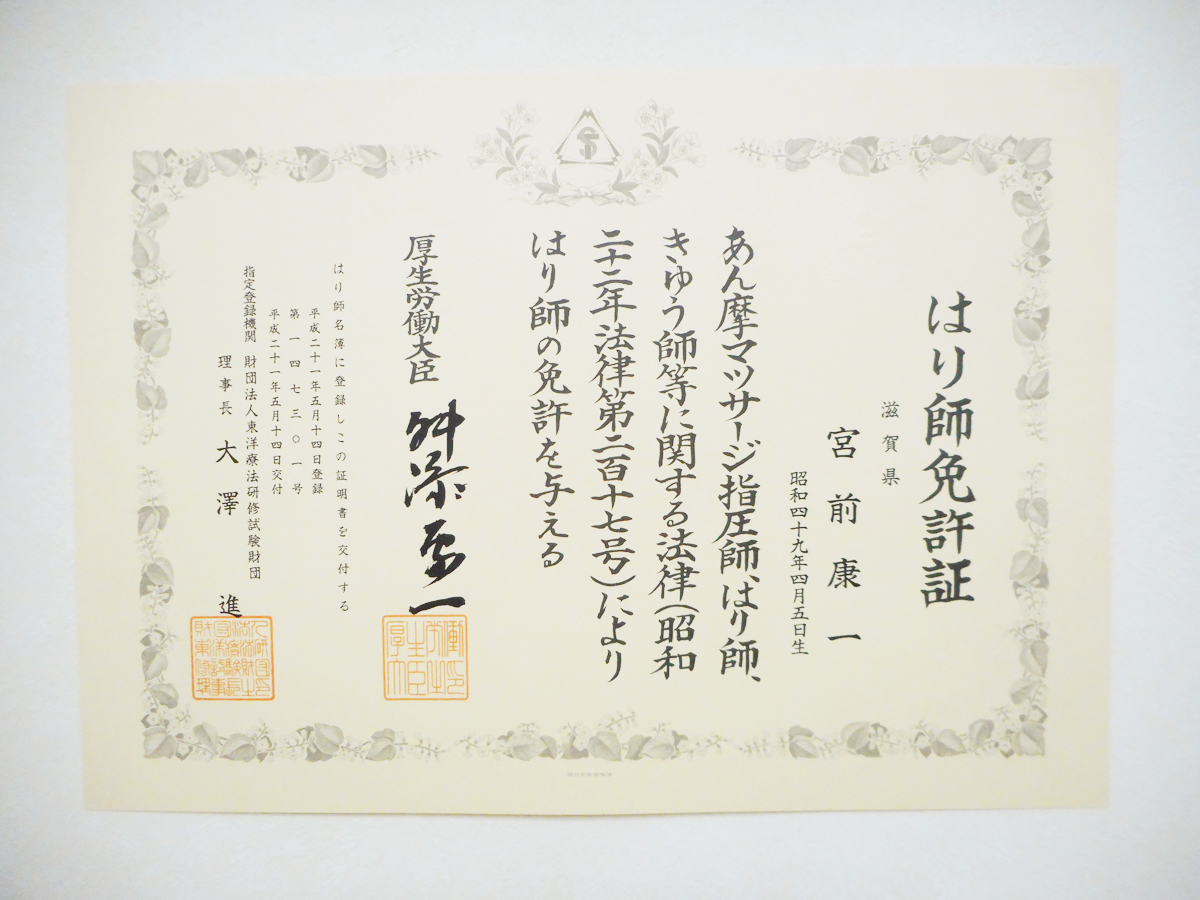 はり師免許証
滋賀県
宮前康一
昭和四十九年四月五日生
あん摩マツサージ指圧師、はり師、
きゆう師等に関する法律(昭和
二十二年法律第二百十七号)により
はり師の免許を与える
厚生労働大臣 舛添要一
はり師名簿に登録しこの証明書を交付する
平成二十一年五月十四日登録
第一四七三〇一号
平成二十一年五月十四日交付
指定登録機関 財団法人東洋療法研修試験財団
理事長 大澤進